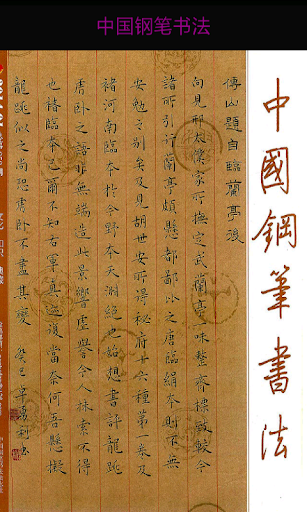 中国钢笔书法
中國鋼筆書法
傅山題自臨蘭亭後
向見邢太僕家所撫定武蘭亭一味整齊標緻較今
諸所行蘭亭頗懸都鄙以之唐臨絹本則不無
安勉之別矣及見胡世安所得秘府廿六種第一卷乃
褚河南臨本於今野本天淵絕也始想書評龍跳
虎臥之語非無端造此景響虛譽令人抹索不得
也褚臨本已爾不知右軍真蹟復當奈何吾懸擬
龍跳似之尚恐虎臥不盡其變 癸巳年